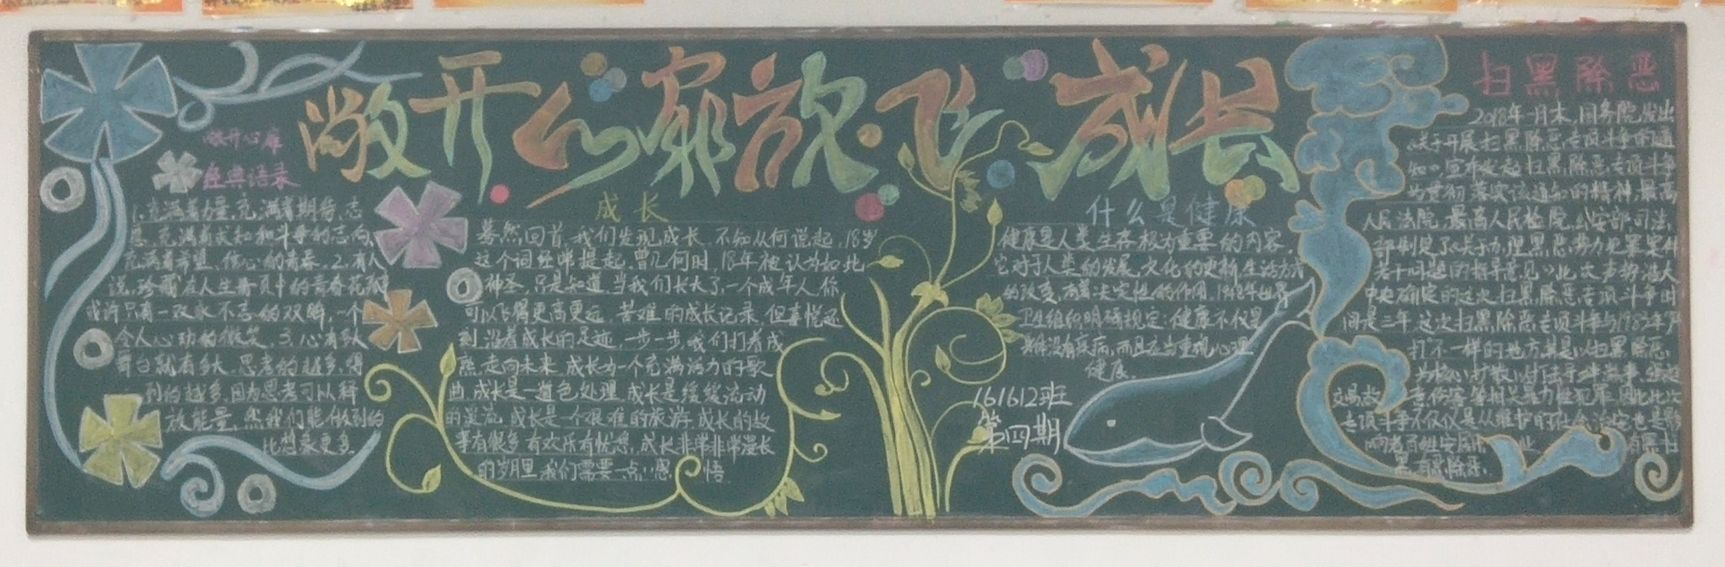 敞开心扉放飞成长
敞开心扉
经典语录
1.充满着力量,充满着期待,志
愿,充满着求知和斗争的志向,
充满着希望、信心的青春。2.有人
说,珍藏在人生
或许只有一双永不言的双眸,一个
令人心动的微笑。3.心有多大
舞台就有多大。思考的越多,得
到的越多。因为思考可以释
放能量,然我们能做到的
比想象更多。
成长
蓦然回首,我们发现成长,不知从何说起,18岁
这个词经常提起,曾几何时,18年被认为如此
神圣,只是知道,当我们长大了,一个成年人,你
可以飞得更高更远。苦难的成长记录,但喜悦还
刻沿着成长的足迹,一步一步,我们打着成
熟,走向未来。成长为一个充满活力的歌
曲,成长是一道色处理,成长是缓缓流动
的溪流,成长是一个很难的旅游,成长的故
事有很多,有欢乐有忧愁,成长非常非常漫长
的岁月里,我们需要一点,思 悟
什么是健康
健康是人类生存极为重要的内容,
它对于人类的发展,文化的更新,生活方式
的改变,有着决定性的作用。1948年世界
卫生组织明确规定:健康不仅是
身体没有疾病,而且应当重视心理
健康。
161612班
第四期
扫黑除恶
2018年一月末,国务院发出
《关于开展扫黑除恶专项斗争的通
知》。宣布发起扫黑除恶专项斗争
为贯彻落实该通知的精神,最高
人民法院,最高人民检院,公安部,司法
部制定了《关于办理黑恶势力犯罪案件
若干问题的指导意见》此次
中央确定的这次扫黑除恶专项斗争时
间是三年。这次扫黑除恶专项斗争与1982年严
打不一样的地方其是以扫黑除恶
专项斗争不仅仅是从维护
响老百姓安居